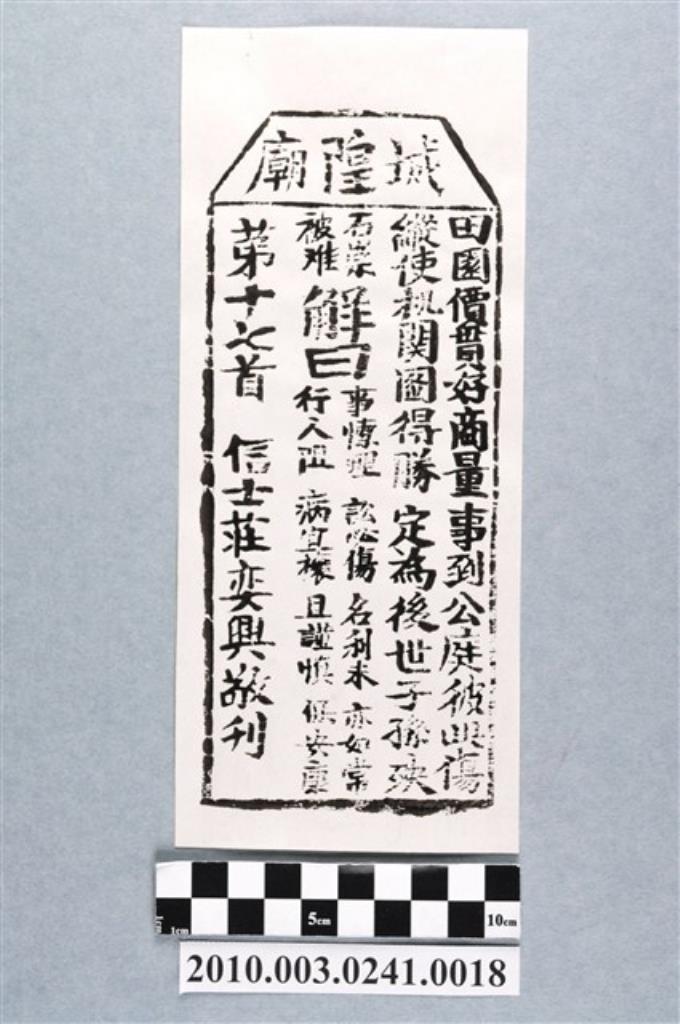 城隍廟
田園價貫好商量事到公庭彼此傷
縱使机関圖得勝定為後世子孫殃
石崇
被难
解曰
事憑理 訟 傷 名利未 亦如常
行人阻 病宜禳 且謹慎 保安康
第十七首 信士莊奕興敬刊
1cm 5cm 10cm
2010.003.0241.0018